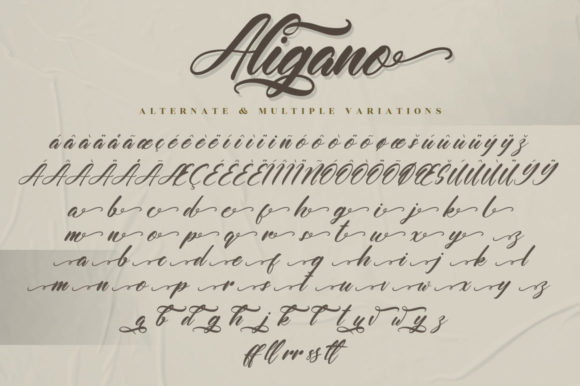 Aligano
ALTERNATE & MULTIPLE VARIATIONS
áâàäåãæçéêèëíîìïñóôòöõøœšúûùüýÿž
ÁÂÀÄÅÃÆÇÉÊÈËÍÎÌÏÑÓÔÒÖÕØŒŠÚÛÙÜÝŸ
a b c d e f h g i j k l
m n o p q r s t w x y z
a b c d e f g h i j k l
m n o p r s t u v w x y z
a b d g h j k l t y v w y z
ff ll rr ss tt